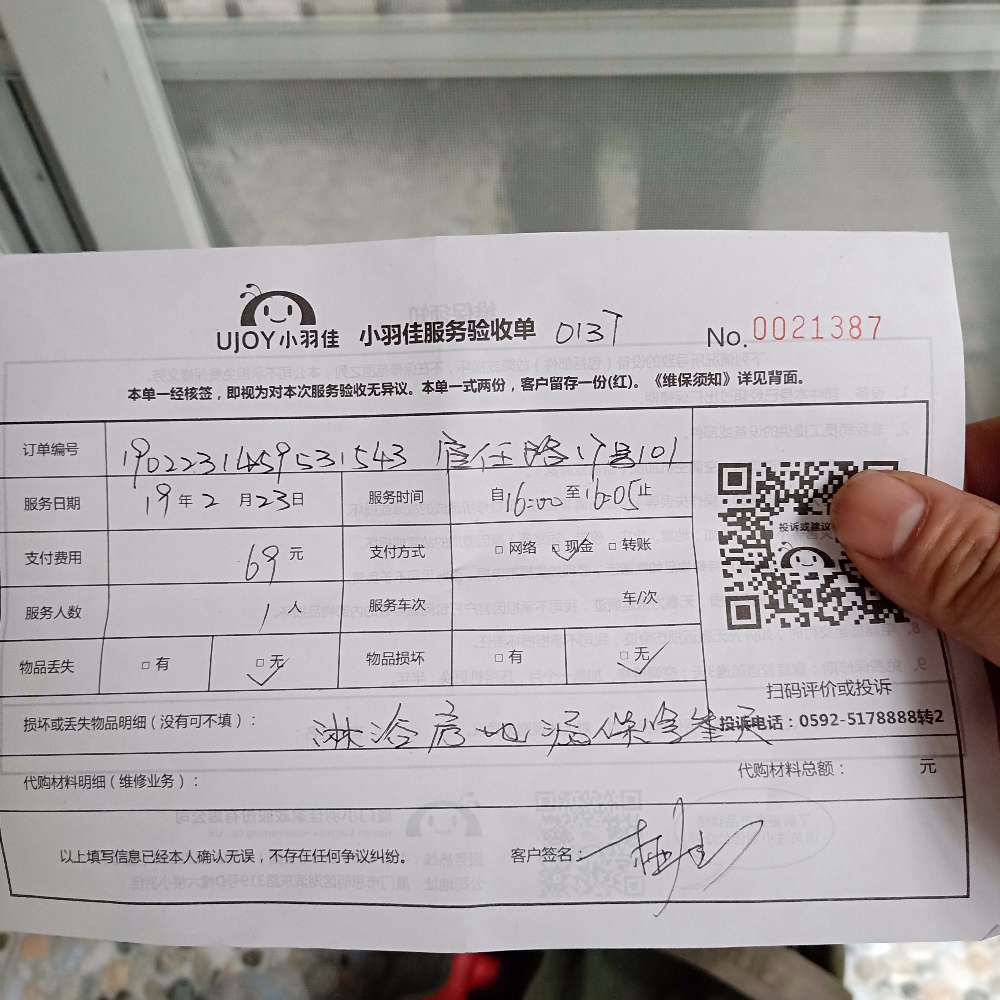 UJOY小羽佳 小羽佳服务验收单 0137 No. 0021387
本单一经核签，即视为对本次服务验收无异议。本单一式两份，客户留存一份(红)。《维保须知》详见背面。
订单编号 19022314459531543 官任路 号101
服务日期 19年2月23日 服务时间 自16:00至16:05止
支付费用 69元 支付方式 □网络 □现金 □转账
服务人数 1人 服务车次 车/次
物品丢失 □有 □无 物品损坏 □有 □无
投诉或建议
扫码评价或投诉
投诉电话：0592-5178888转2
损坏或丢失物品明细（没有可不填）： 淋浴房地漏保 天
代购材料明细（维修业务）： 代购材料总额： 元
以上填写信息已经本人确认无误，不存在任何争议纠纷。 客户签名：